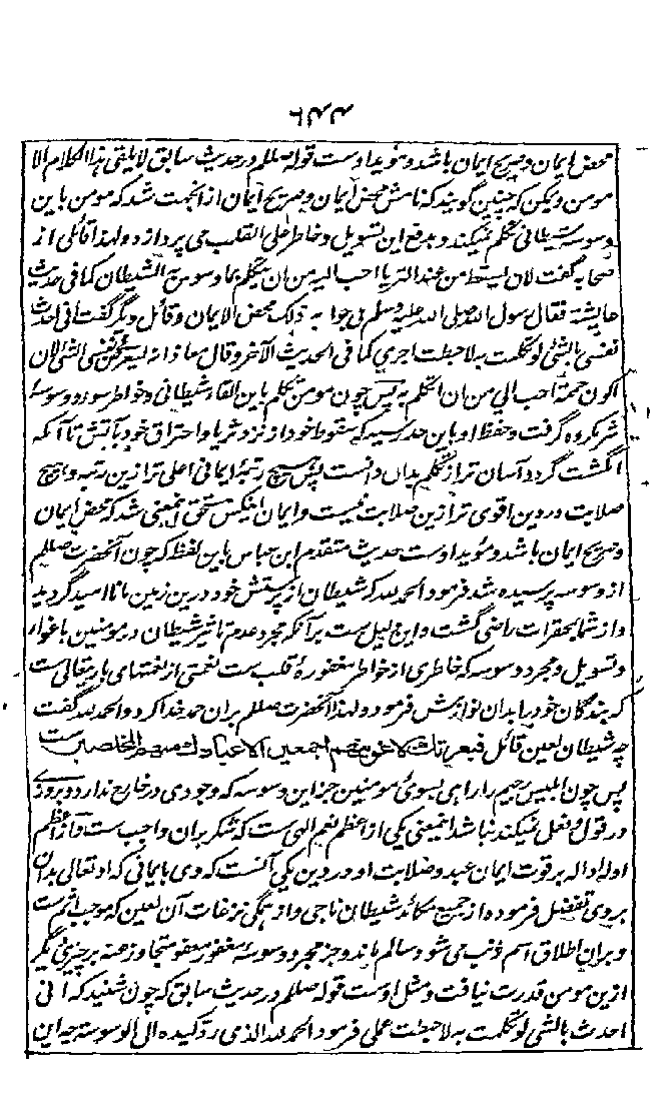 محض ایمان و صریح ایمان باشد و مؤید اوست قوله صللم در حدیث سابق لا یلقی هذا الکلام الا
مومن و یمکن که چنین گویند که نامش محض ایمان و صریح ایمان از انجهت شد که مومن باین
وسوسه شیطانی تکلم نمیکند و بدفع این تسویل و خاطر علی القلب می پردازد و لهذا قائلی از
صحابه گفت لان یسقط من عند الثریا احب الیه من ان یتکلم بما وسوس به الشیطان کما فی حدیث
عایشة فقال رسول الله صلی الله علیه وسلم فی جوابه ذلک محض الایمان و قائل دیگر گفت انی احدث
نفسی بالشئ لو تکلمت به لاحبطت اجری کما فی الحدیث الآخر و قال معاذ انه لیعرض فی نفسی الشئ لان
اکون حممة احب الی من ان اتکلم به پس چون مومن تکلم باین القاء شیطانی و خواطر سوء و وسوسهٔ
شر مکروه گرفت و حفظ او باین حد رسید که سقوط خود از نزد ثریا و احتراق خود بآتش تا آنکه
انگشت گردد آسان تر از تکلم بدان دانست پس هیچ رتبهٔ ایمانی اعلی تر ازین رتبه و هیچ
صلابت در دین اقوی تر ازین صلابت نیست و ایمان اینکس مستحق اینمعنی شد که محض ایمان
و صریح ایمان باشد و مؤید اوست حدیث متقدم ابن عباس باین لفظ که چون آنحضرت صللم
از وسوسه پرسیده شد فرمود الحمد لله که شیطان از پرستش خود درین زمین ما نا امید گردید
و از شما بمحقرات راضی گشت و این دلیل ست برآنکه مجرد عدم تاثیر شیطان در مومنین باغواء
و تسویل و مجرد وسوسه که خاطری از خواطر مغفورهٔ قلب ست نعمتی از نعمتهای باریتعالی ست
که بندگان خود را بدان نوازش فرموده و لهذا آنحضرت صللم بران حمد خدا کرد و الحمد لله گفت
چه شیطان لعین قائل فبعزتک لاغوینهم اجمعین الا عبادک منهم المخلصین ست
پس چون ابلیس رجیم را راهی بسوی مومنین جز این وسوسه که وجودی در خارج ندارد و بروزی
در قول و فعل نمیکند نباشد اینمعنی یکی از اعظم نعم الهی ست که شکر بران واجب ست و از اعظم
اوله داله بر قوت ایمان عبد و صلابت او در دین یکی آنست که وی بایمانی که او تعالی بدان
بروی تفضل فرموده از جمیع مکائد شیطان ناجی و از همگی نزغات آن لعین که موجب اثم ست
و بران اطلاق اسم ذنب می شود سالم ماند و جز مجرد وسوسهٔ مغفور معفو متجاوز عنه بر چیزی دیگر
ازین مومن قدرت نیافت و مثل اوست قوله صللم در حدیث سابق که چون شنید که انی
احدث بالشئ لو تکلمت به لاحبطت عملی فرمود الحمد لله الذی رد کیده الی الوسوسة چه این